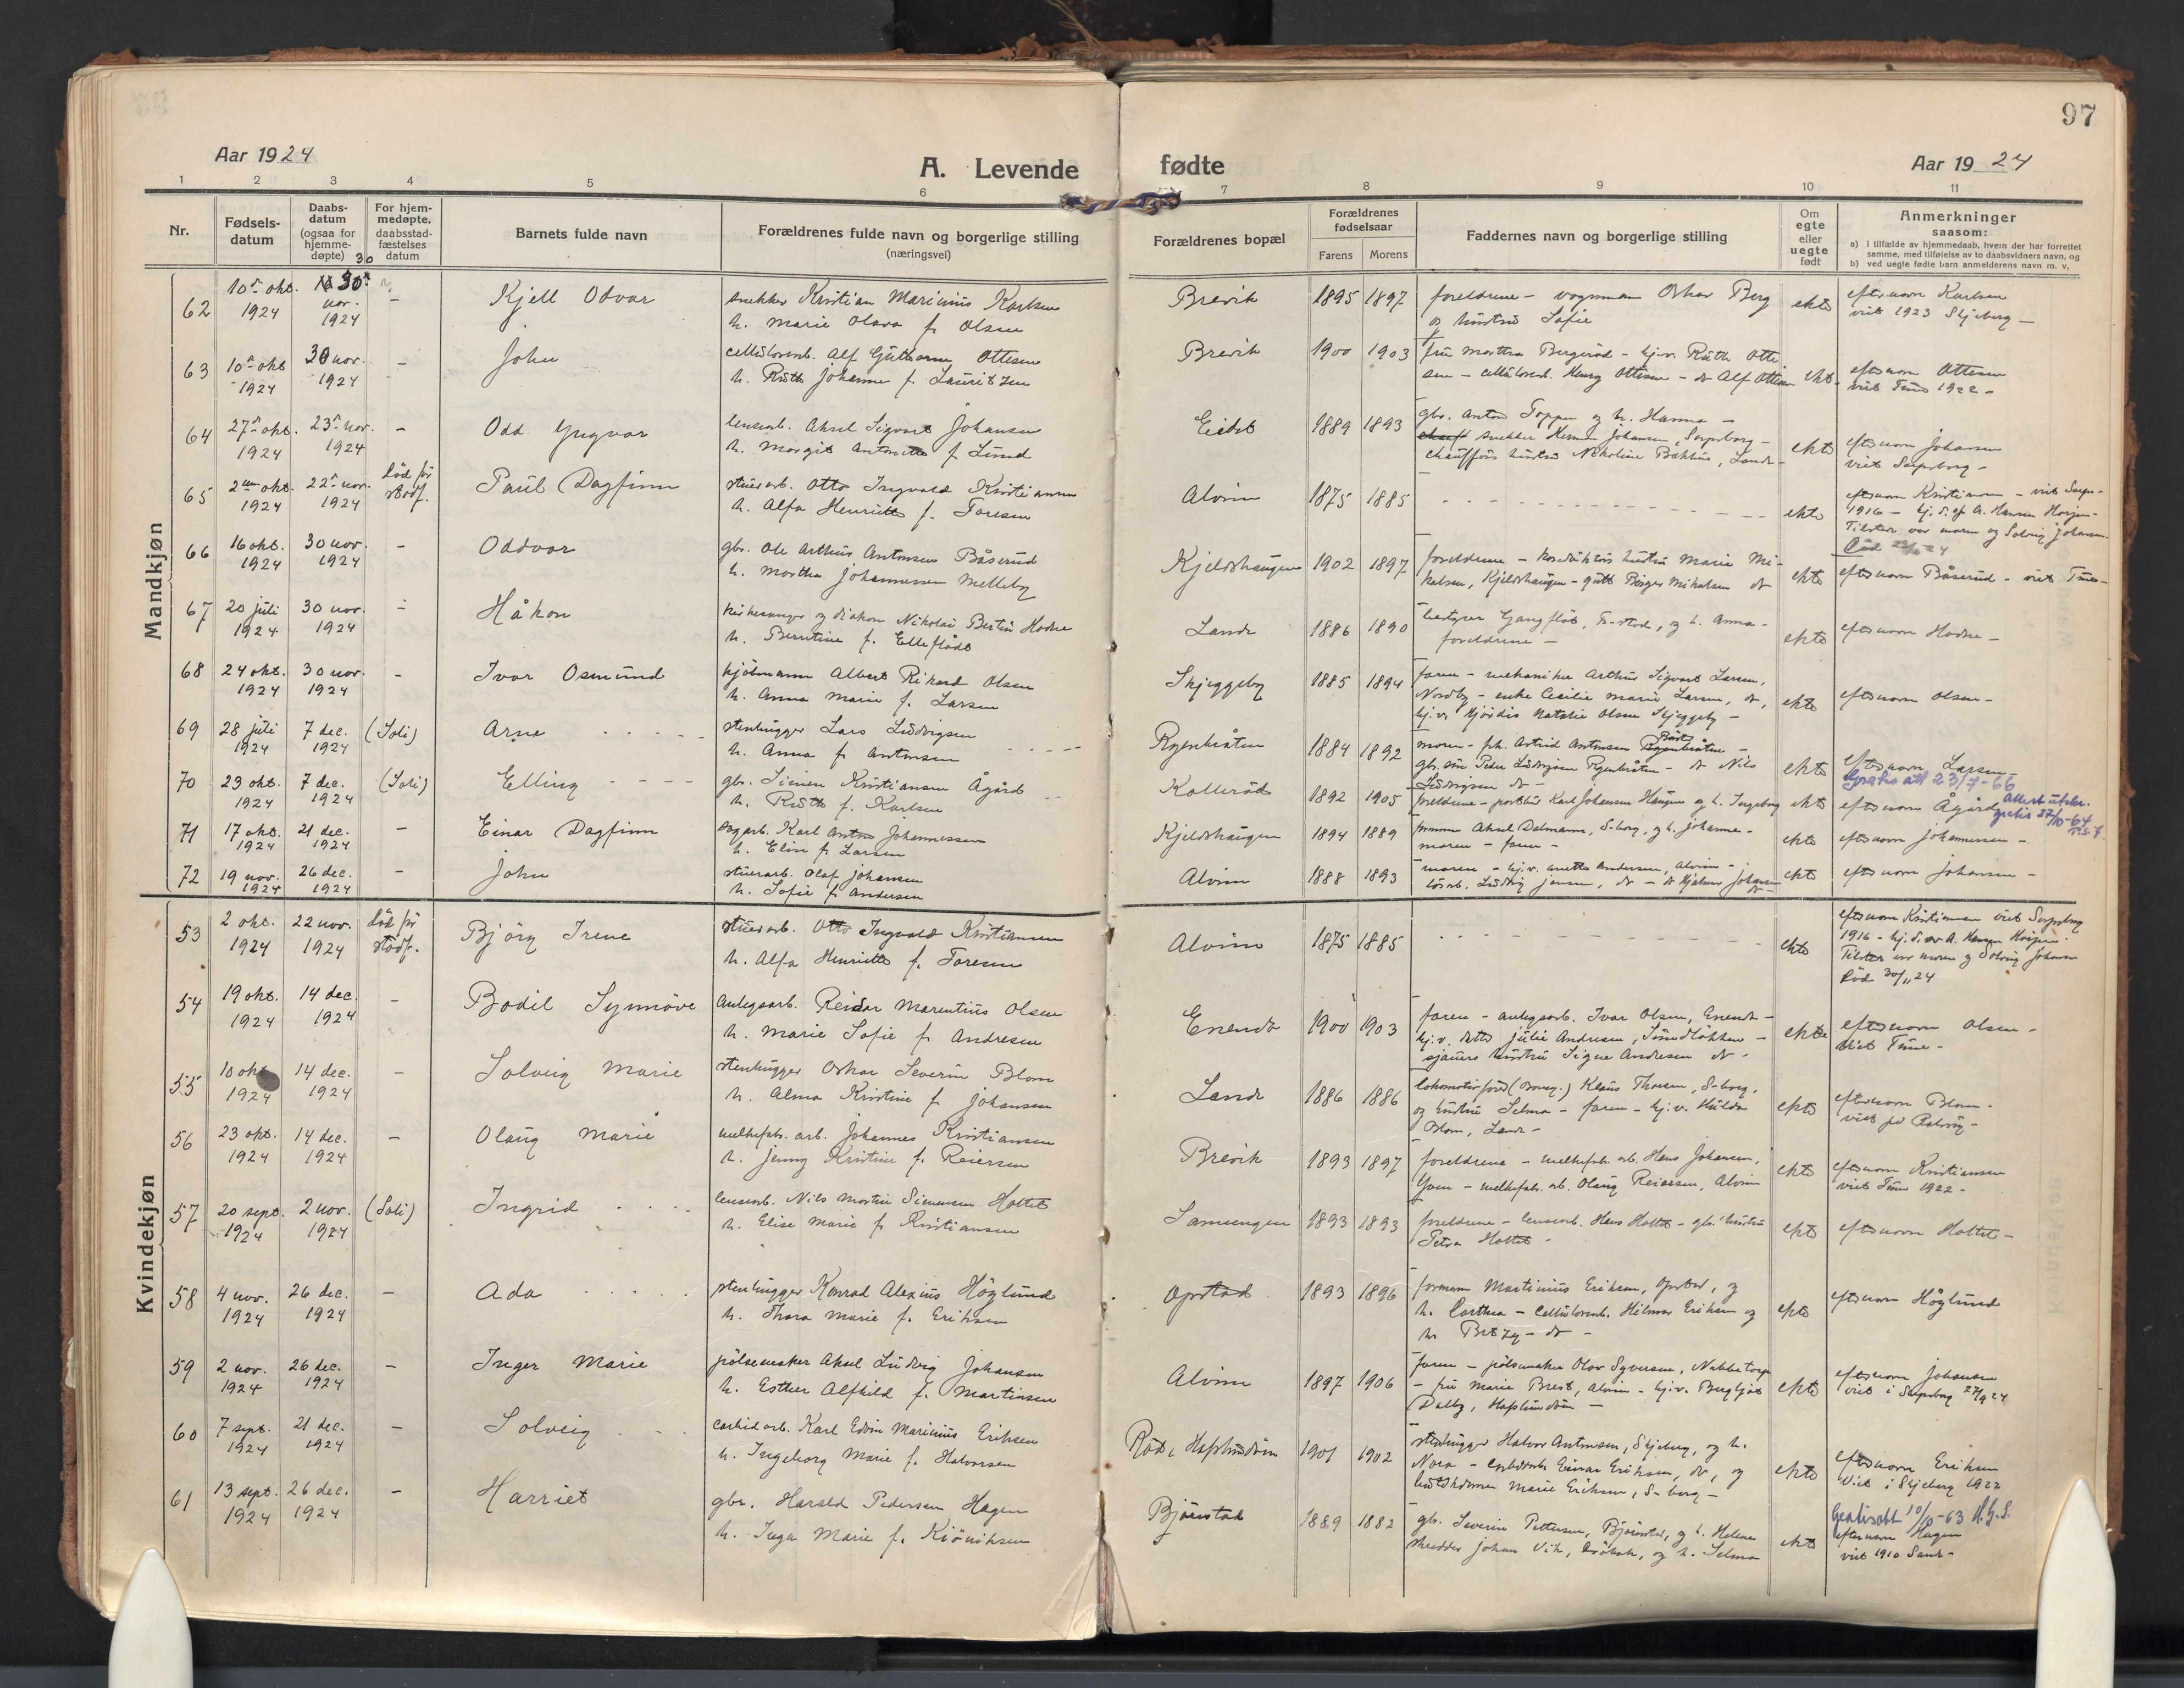 97
Aar 1924
A. Levende fødte
Aar 1924
1 2 3 4 5 6 7 8 9 10 11
Nr.
Fødsels-
datum
Daabs-
datum
(ogsaa for
hjemme-
døpte)
For hjem-
medøpte,
daabsstad-
fæstelses
datum
Barnets fulde navn
Forældrenes fulde navn og borgerlige stilling
(næringsvei)
Forældrenes bopæl
Forældrenes
fødselsaar
Farens Morens
Faddernes navn og borgerlige stilling
Om
egte
eller
uegte
født
Anmerkninger
saasom:
a) i tilfælde av hjemmedaab, hvem der har forrettet
samme, med tilføielse av to daabsvidners navn, og
b) ved uegte fødte barn anmelderens navn m. v.
Mandkjøn
62 10de okt. 1924 30 nov. 1924 – Kjell Odvar
snekker Kristian Marinius Karlsen
h. Marie Olava f. Olsen
Brevik 1895 1897
foreldrene – vognmann Oskar Berg
og hustru Sofie
ekte
efternavn Karlsen
viet 1923 Skjeberg –
63 10de okt 1924 30 nov. 1924 – John
cellulosearb. Alf Guttorm Ottesen
h. Ruth Johanne f. Lauritzen
Brevik 1900 1903
fru Marthea Bergerød – hj.v. Ruth Otte
sen – cellulosearb. Henry Ottesen – do Alf Ottesen
ekte
efternavn Ottesen
viet Tune 1922 –
64 27de okt. 1924 23de nov. 1924 – Odd Yngvar
lensearb. Aksel Sigvart Johansen
h. Margit Antonette f. Lund
Eidet 1889 1893
gbr. Anton Toppen og h. Hanna –
snekker Herman Johansen, Sarpsborg –
chaufførs hustru Nikoline Bakhus, Lande –
ekte
efternavn Johansen
viet Sarpsborg –
65 2den okt. 1924 22de nov. 1924 död för stadf. Paul Dagfinn
stuerarb. Otto Ingvald Kristiansen
h. Alfa Henriette f. Toresen
Alvim 1875 1885
– – – – –
ekte
efternavn Kristiansen – viet Sarps-
1916 – hj.d. af A. Hansen
Tilstede var moren og Solveig Johansen
66 16 okt. 1924 30 nov. 1924 – Oddvar
gbr. Ole Arthur Antonsen Båserud
h. Marthea Johannessen Melleby
Kjeldshaugen 1902 1897
foreldrene – hustru Marie Mi-
kalsen, Kjeldshaugen – gutt Birger Mikalsen do
ekte
efternavn Båserud – viet Tune –
67 20 juli 1924 30 nov. 1924 – Håkon
kirkesanger og diakon Nikolai Bertin Hodne
h. Berntine f. Elleflådt
Lande 1886 1890
bestyrer Gangfløt, Fr-stad, og h. Anna –
foreldrene –
ekte
efternavn Hodne –
68 24 okt. 1924 30 nov. 1924 – Ivar Osmund
kjöbmann Albert Rikard Olsen
h. Anna Marie f. Larsen
Skjeggeby 1885 1894
faren – mekaniker Arthur Sigvart Larsen,
Nordby – enke Cecilie Marie Larsen, do,
hj.v. Hjördis Natalie Olsen Skjeggeby –
ekte
efternavn Olsen –
69 28 juli 1924 7 dec. 1924 (Soli) Arne
stenhugger Lars Ludvigsen
h. Anna f. Antonsen
Rygenbråten 1884 1892
moren – frk. Astrid Antonsen
gbr. sön Peder Ludvigsen Rygenbråten – do Nils
Ludvigsen do –
ekte
efternavn Larsen
Gratis att 23/7-66
70 23 okt. 1924 7 dec. 1924 (Soli) Elling
gbr. Simen Kristiansen Ågård
h. Ruth f. Karlsen
Kollerød 1892 1905
foreldrene – Karl Johansen Haugen og h. Ingeborg
ekte
efternavn Ågård
Attest utskr.
gratis 27/10-64
71 17 okt. 1924 21 dec. 1924 – Einar Dagfinn
Karl Anton Johannessen
h. Elin f. Larsen
Kjeldshaugen 1894 1889
formann Aksel Dalmann, S-borg, og h. Johanne –
moren – faren –
ekte
efternavn Johannessen –
72 19 nov. 1924 26 dec. 1924 – John
stuerarb. Olaf Johansen
h. Sofie f. Andersen
Alvim 1888 1893
moren – hj.v. Anette Andersen, Alvim –
Ludvig Jensen, do – do Hjalmar Johansen do –
ekte
efternavn Johansen –
Kvindekjøn
53 2 okt. 1924 22 nov. 1924 död för stadf. Bjørg Irene
stuerarb. Otto Ingvald Kristiansen
h. Alfa Henriette f. Toresen
Alvim 1875 1885
– – – – –
ekte
efternavn Kristiansen viet Sarpsborg
1916 – hj.d. av A. Hansen
Tilstede var moren og Solveig Johansen
död 30/11 24
54 19 okt. 1924 14 dec. 1924 – Bodil Synnöve
anlegsarb. Reidar Marentius Olsen
h. Marie Sofie f. Andresen
Enende 1900 1903
faren – anlegsarb. Ivar Olsen, Enende –
hj.v. Julie Andresen, –
sjauers hustru Signe Andresen do –
ekte
efternavn Olsen –
viet Tune –
55 10 okt 1924 14 dec. 1924 – Solveig Marie
stenhugger Oskar Severin Blom
h. Alma Kristine f. Johansen
Lande 1886 1886
lokomotivförer Klaus Thoresen, S-borg,
og hustru Selma – faren – hj.v. Hulda
Blom, Lande –
ekte
efternavn Blom –
viet på Rolvsöy –
56 23 okt. 1924 14 dec. 1924 – Olaug Marie
melkefab. arb. Johannes Kristiansen
h. Jenny Kristine f. Reiersen
Brevik 1893 1897
foreldrene – melkefab. arb. Hans Johansen,
Yven – melkefab. arb. Olaug Reiersen, Alvim
ekte
efternavn Kristiansen
viet Tune 1922 –
57 20 sept. 1924 2 nov. 1924 (Soli) Ingrid
lensearb. Nils Martin Simensen Holtet
h. Elise Marie f. Kristiansen
1893 1893
foreldrene – lensearb. Hans Holtet – gbr. hustru
Petra Holtet –
ekte
efternavn Holtet –
58 4 nov. 1924 26 dec. 1924 – Ada
stenhugger Konrad Alexius Höglund
h. Thora Marie f. Eriksen
Opstad 1893 1896
formann Martinius Eriksen, Opstad, og
h. – cellulosearb. Hilmar Eriksen og
h. Betzy – do –
ekte
efternavn Höglund
59 2 nov. 1924 26 dec. 1924 – Inger Marie
pölsemaker Aksel Ludvig Johansen
h. Esther Alfhild f. Martinsen
Alvim 1897 1906
faren – pölsemaker Olav Syversen, Nabbetorp
– fru Marie Brest, Alvim – hj.v. Bergljot
Dalby, Hafslundsöen –
ekte
efternavn Johansen
viet i Sarpsborg 27/9 24
60 7 sept. 1924 21 dec. 1924 – Solveig
carbidarb. Karl Edvin Marinius Eriksen
h. Ingeborg Marie f. Halvorsen
Röd, Hafslundsöen 1901 1902
stenhugger Halvor Antonsen, Skjeberg, og h.
Nora – carbidarb. Einar Eriksen, do, og
Marie Eriksen, S-borg –
ekte
efternavn Eriksen
Viet i Skjeberg 1922
61 13 sept. 1924 26 dec. 1924 – Harriet
gbr. Harald Pedersen Hagen
h. Inga Marie f. Kiöniksen
Bjørnstad 1889 1882
gbr. Severin Pettersen, Bjørnstad, og h. Helene
skredder Johan Vik, Dröbak, og h. Selma
ekte
Gratisatt 10/10-63
efternavn Hagen
viet 1910 Sand –